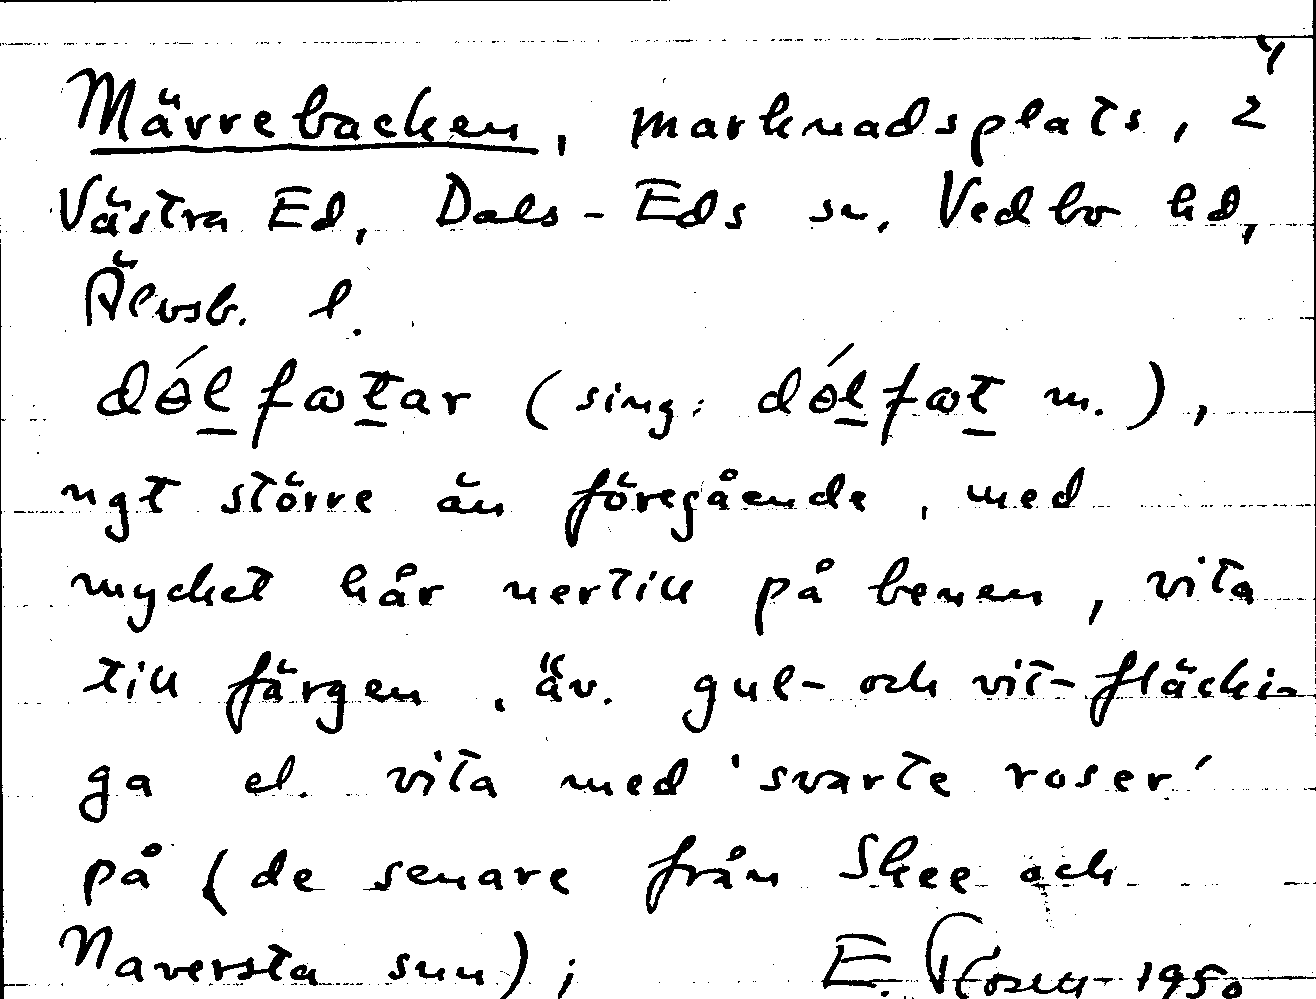 4
Märrebacken, marknadsplats, 2
Västra Ed, Dals-Eds sn, Vedbo hd,
Älvsb. l.
dó̵lfɷtar (sing: dó̵lfɷt m.),
ngt större än föregående, med
mycket hår nertill på benen, vita
till färgen, äv. gul- och vit-fläcki-
ga el. vita med 'svarte roser'
på (de senare från Skee och
Naversta snn); E. 1950